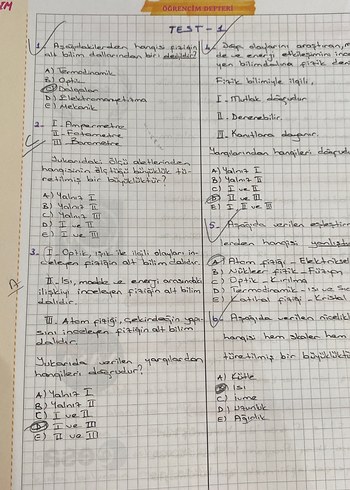 ÖĞRENCİM DEFTERİ
TEST - 1
1. Aşağıdakilerden hangisi fiziğin
alt bilim dallarından bir değildir?
A) Termodinamik
B) Optik
C) Dalgalar
D) Elektromanyetizma
E) Mekanik
2. I. Ampermetre
II. Fotometre
III. Barometre
Yukarıdaki ölçü aletlerinden
hangisinin ölçtüğü büyüklük tü-
retilmiş bir büyüklüktür?
A) Yalnız I
B) Yalnız II
C) Yalnız III
D) I ve II
E) I ve III
3. I. Optik, ışık ile ilgili olayları in-
celeyen fiziğin alt bilim dalıdır.
II. Isı, madde ve enerji arasındaki
ilişkiyi inceleyen fiziğin alt bilim
dalıdır.
III. Atom fiziği, çekirdeğin yapı-
sını inceleyen fiziğin alt bilim
dalıdır.
Yukarıda verilen yargılardan
hangileri doğrudur?
A) Yalnız I
B) Yalnız II
C) I ve II
D) I ve III
E) II ve III
4. Doğa olaylarını araştıran, m
de ve enerji etkileşimini ince
yen bilim dalına fizik den
Fizik bilimiyle ilgili,
I. Mutlak doğrudur
II. Denenebilir.
III. Kanıtlara dayanır.
Yargılarından hangileri doğrud
A) Yalnız I
B) Yalnız II
C) I ve II
D) II ve III
E) I, II ve III
5. Aşağıda verilen eşleştirm
lerden hangisi yanlıştır
A) Atom fiziği - Elektriksel
B) Nükleer fizik - Füzyon
C) Optik - Kırılma
D) Termodinamik - Isı ve Sıc
E) Katıhal fiziği - Kristal
6. Aşağıda verilen nicelikl
hangisi hem skaler hem
türetilmiş bir büyüklüktü
A) Kütle
B) Isı
C) İvme
D) Uzunluk
E) Ağırlık